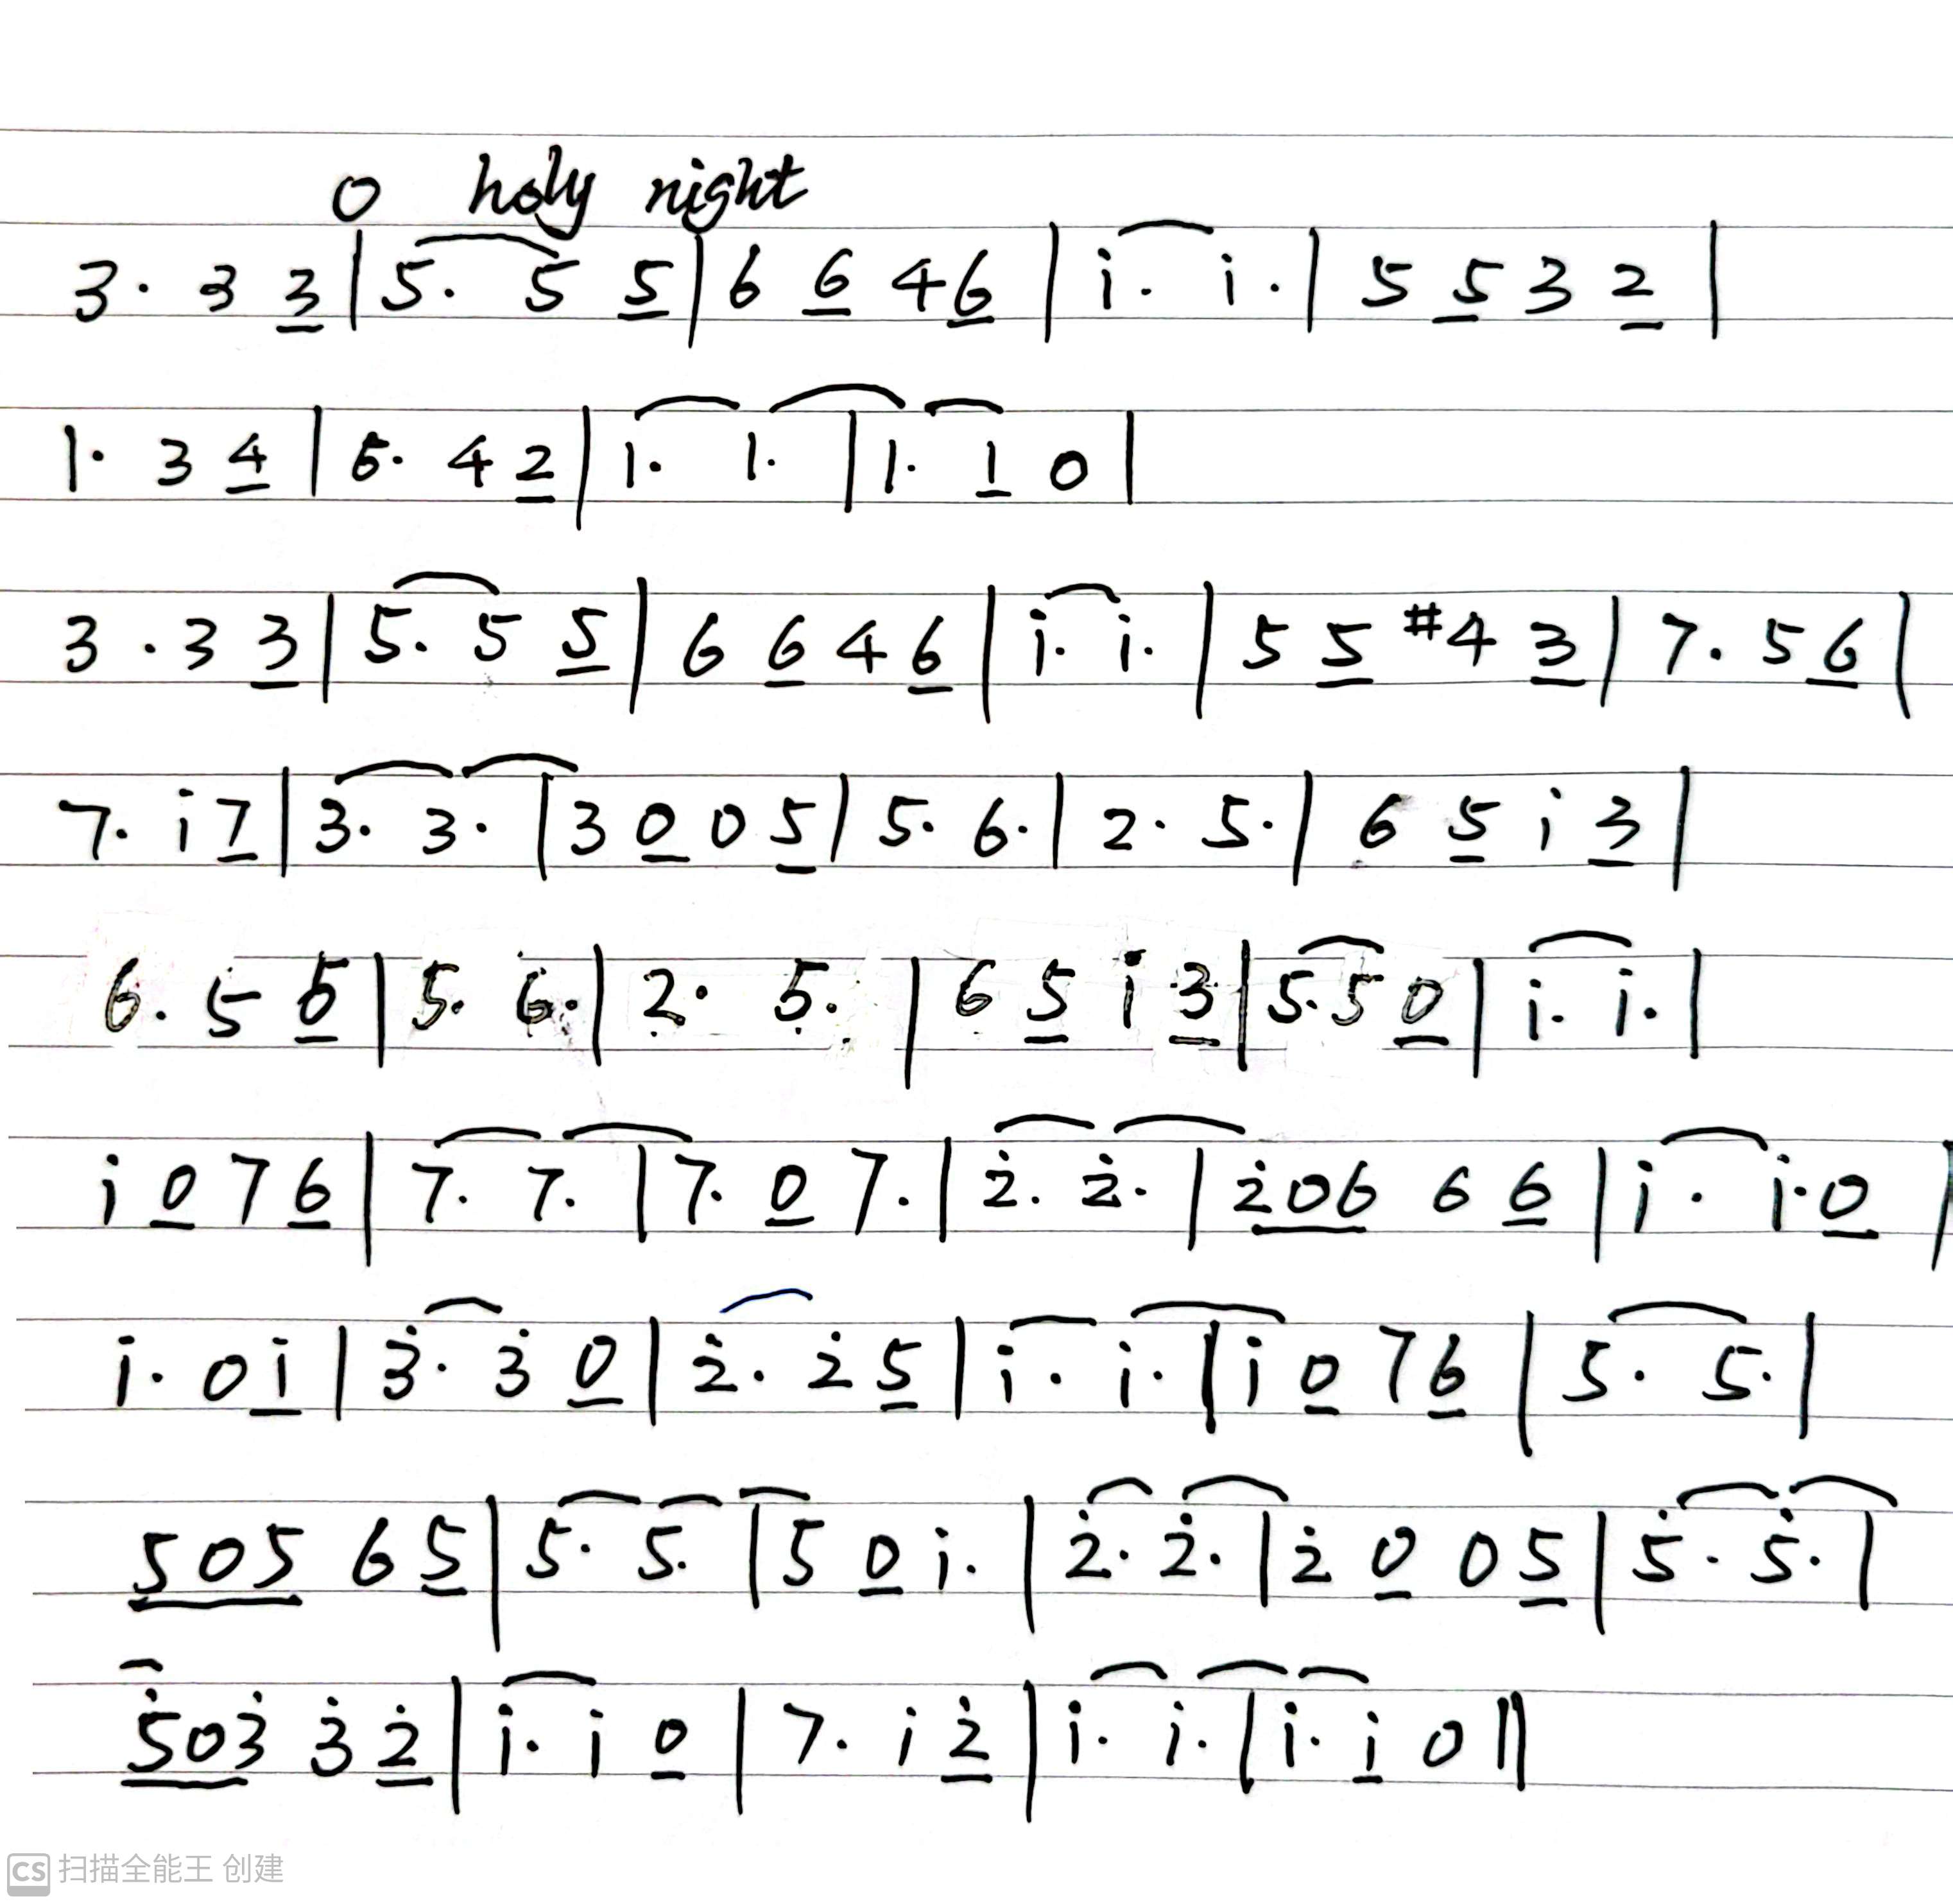 O holy night
3· 3 3̲ | 5· 5 5̲ | 6 6̲ 4 6̲ | i· i· | 5 5̲ 3 2̲ |
1· 3 4̲ | 5· 4 2̲ | 1· 1· | 1· 1̲ 0 |
3· 3 3̲ | 5· 5 5̲ | 6 6̲ 4 6̲ | i· i· | 5 5̲ #4 3̲ | 7· 5 6̲ |
7· i 7̲ | 3· 3· | 3 0̲ 0 5̲ | 5· 6· | 2· 5· | 6 5̲ i 3̲ |
6· 5 5̲ | 5· 6· | 2· 5· | 6 5̲ i 3̲ | 5· 5 0̲ | i· i· |
i 0̲ 7 6̲ | 7· 7· | 7· 0̲ 7· | 2̇· 2̇· | 2̲̇0̲6̲ 6 6̲ | i· i· 0̲ |
i· 0 i̲ | 3̇· 3̇ 0̲ | 2̇· 2̇ 5̲ | i· i· | i 0̲ 7 6̲ | 5· 5· |
5̲0̲5̲ 6 5̲ | 5· 5· | 5 0̲ i· | 2̇· 2̇· | 2̇ 0̲ 0 5̲ | 5̇· 5̇· |
5̲̇0̲3̲̇ 3̇ 2̲̇ | i· i 0̲ | 7· i 2̲̇ | i· i· | i· i̲ 0 ||
CS 扫描全能王 创建